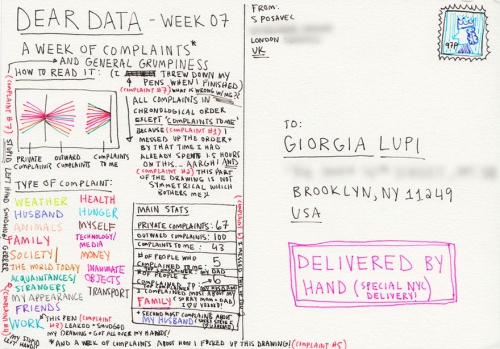 DEAR DATA - WEEK 07
A WEEK OF COMPLAINTS*
AND GENERAL GRUMPINESS
HOW TO READ IT: (I THREW DOWN MY
PENS WHEN I FINISHED)
(COMPLAINT #7) WHAT IS WRONG W/ME?!
ALL COMPLAINTS IN
CHRONOLOGICAL ORDER
EXCEPT 'COMPLAINTS TO ME'
BECAUSE (COMPLAINT #1) I
MESSED UP THE ORDER +
BY THAT TIME I HAD
ALREADY SPENT 1.5 HOURS
ON THIS... AARGH! AND
(COMPLAINT #2) THIS PART
OF THE DRAWING IS NOT
SYMMETRICAL WHICH
BOTHERS ME
PRIVATE COMPLAINTS
OUTWARD COMPLAINTS
COMPLAINTS TO ME
TYPE OF COMPLAINT:
WEATHER
HUSBAND
ANIMALS
FAMILY
SOCIETY/
THE WORLD TODAY
ACQUAINTANCES/
STRANGERS
MY APPEARANCE
FRIENDS
WORK
HEALTH
HUNGER
MYSELF
TECHNOLOGY/
MEDIA
MONEY
INANIMATE
OBJECTS
TRANSPORT
MAIN STATS
PRIVATE COMPLAINTS: 67
OUTWARD COMPLAINTS: 100
COMPLAINTS TO ME: 43
# OF PEOPLE WHO
COMPLAINED TO ME: 5
# OF PEOPLE I
I COMPLAINED MOST ABOUT MY
FAMILY (SORRY MOM + DAD
+ SECOND MOST COMPLAINS ABOUT
MY HUSBAND
*THIS PEN (COMPLAINT
#3) LEAKED + SMUDGED
MY DRAWING + GOT ALL OVER MY HANDS!
(MY STUPID
LEFT HAND!)
*AND A WEEK OF COMPLAINING ABOUT HOW I FUCKED UP THIS DRAWING! (COMPLAINT #5)
FROM:
S POSAVEC
LONDON
UK
97P
TO:
GIORGIA LUPI
BROOKLYN, NY 11249
USA
DELIVERED BY
HAND (SPECIAL NYC
DELIVERY!)